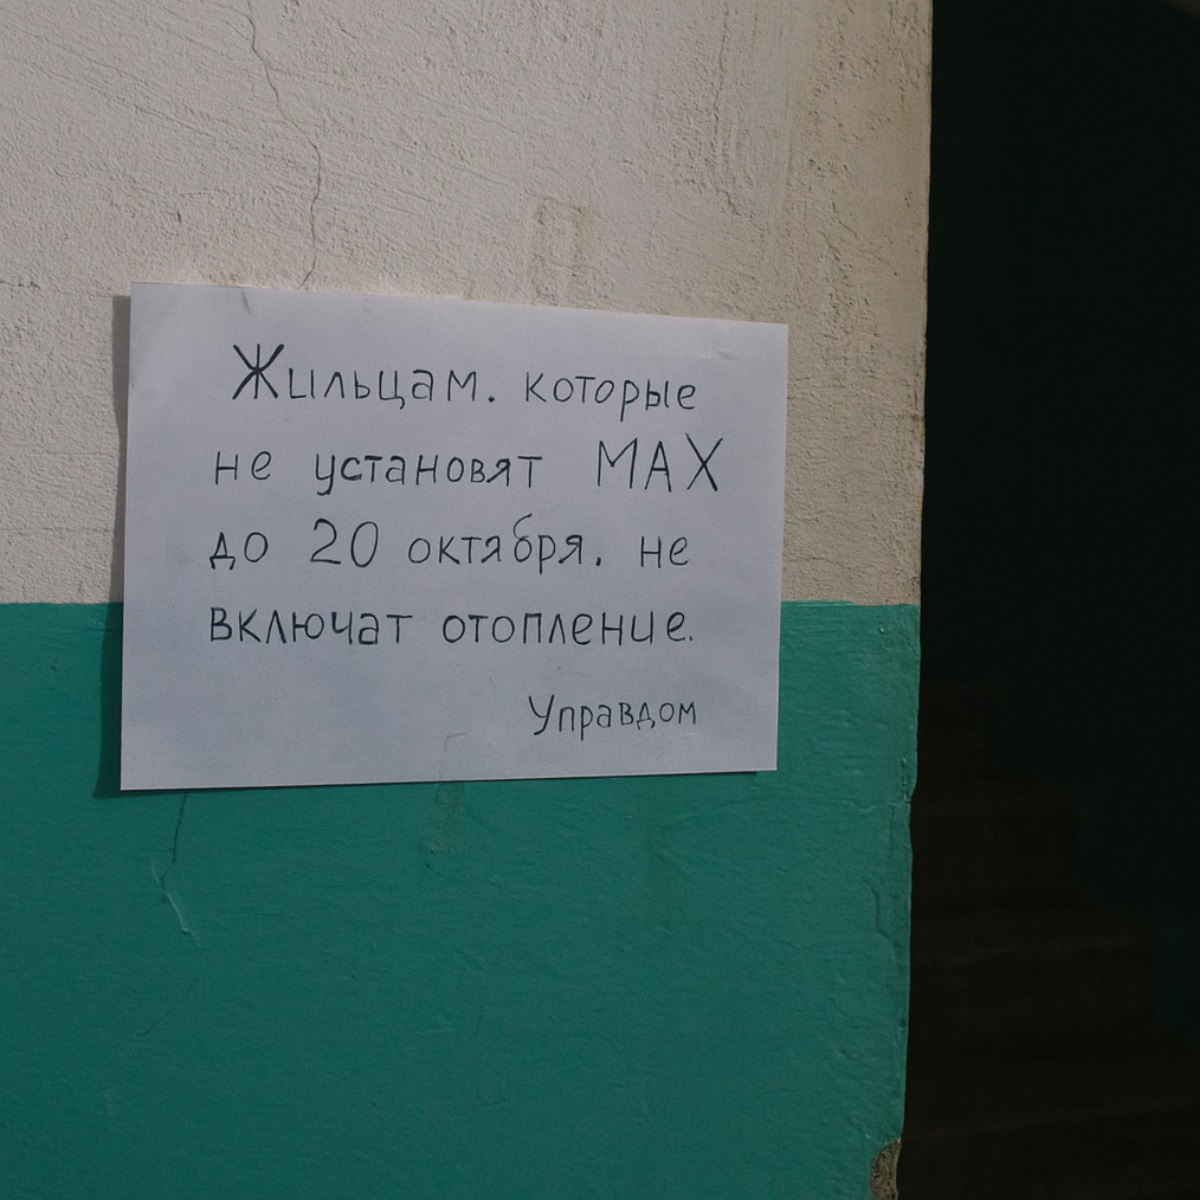 Жильцам. которые
не установят MAX
до 20 октября. не
включат отопление.
Управдом